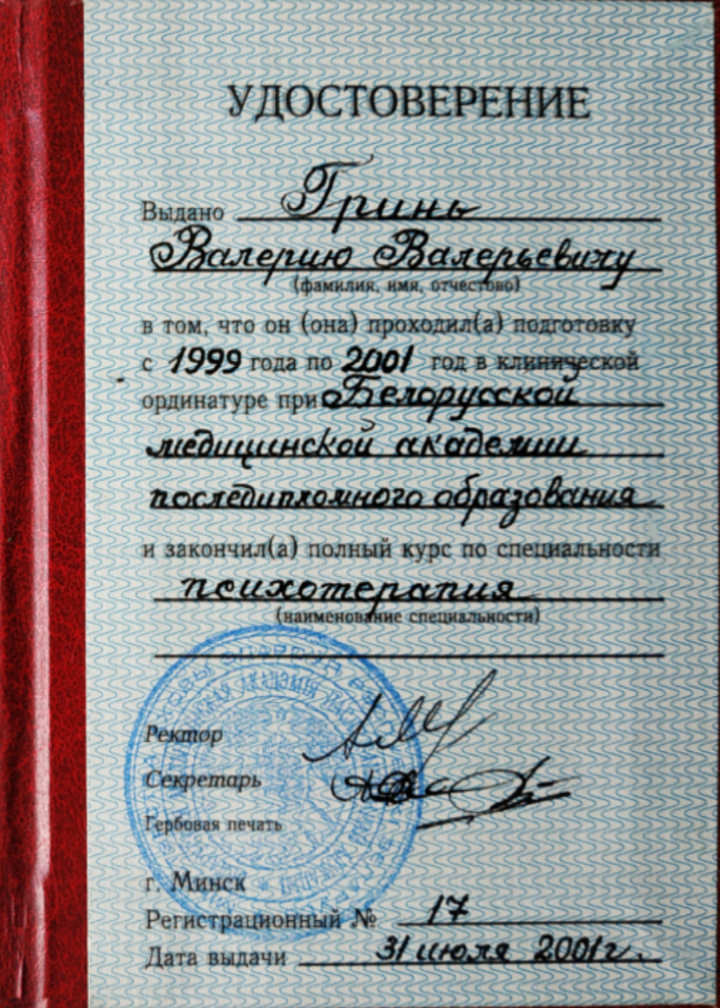 УДОСТОВЕРЕНИЕ
Выдано Гринь
Валерию Валерьевичу
(фамилия, имя, отчество)
в том, что он (она) проходил(а) подготовку
с 1999 года по 2001 год в клинической
ординатуре при Белорусской
медицинской академии
последипломного образования
и закончил(а) полный курс по специальности
психотерапия
(наименование специальности)
Ректор
Секретарь
Гербовая печать
г. Минск
Регистрационный № 17
Дата выдачи 31 июля 2001г.